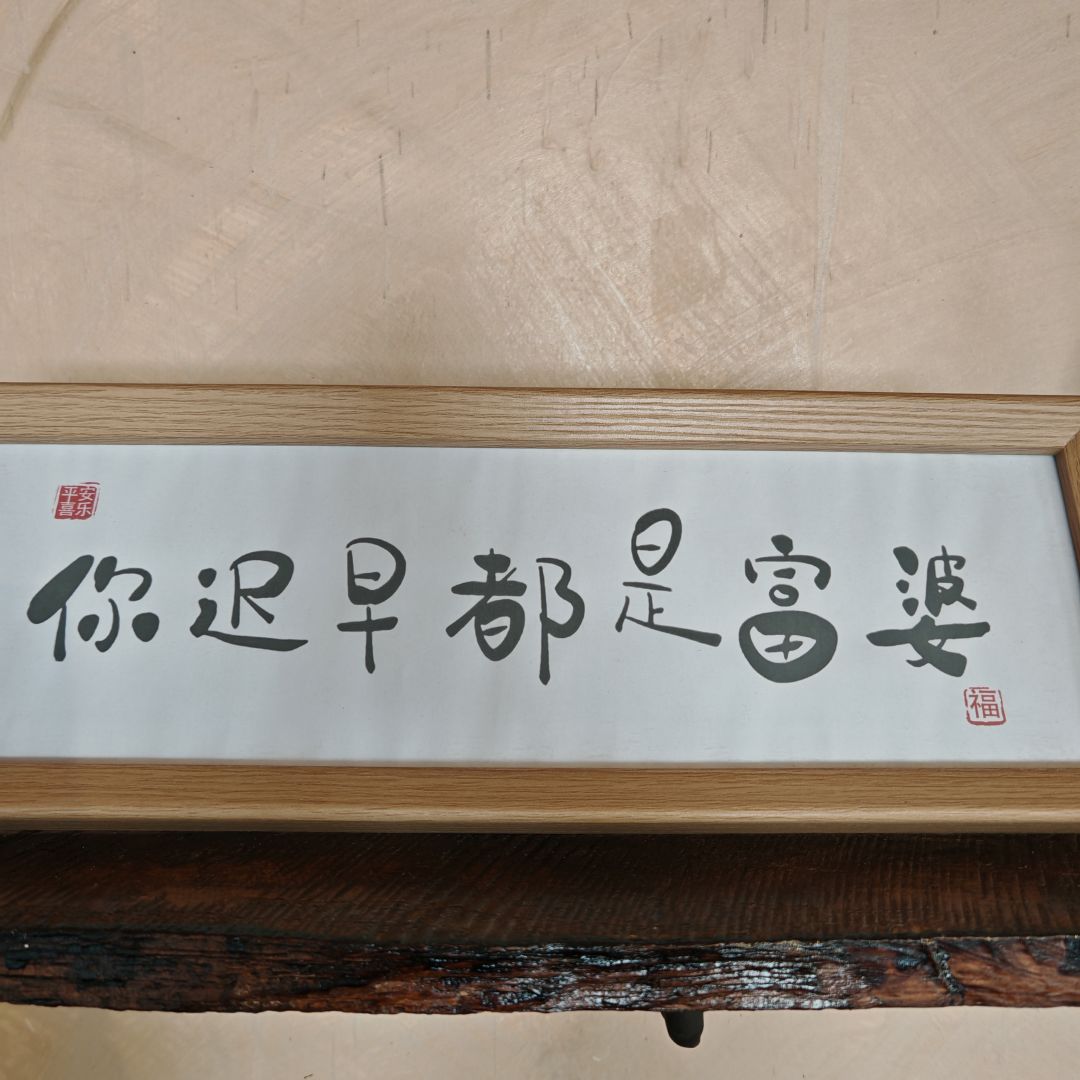 平安喜乐
你迟早都是富婆
福